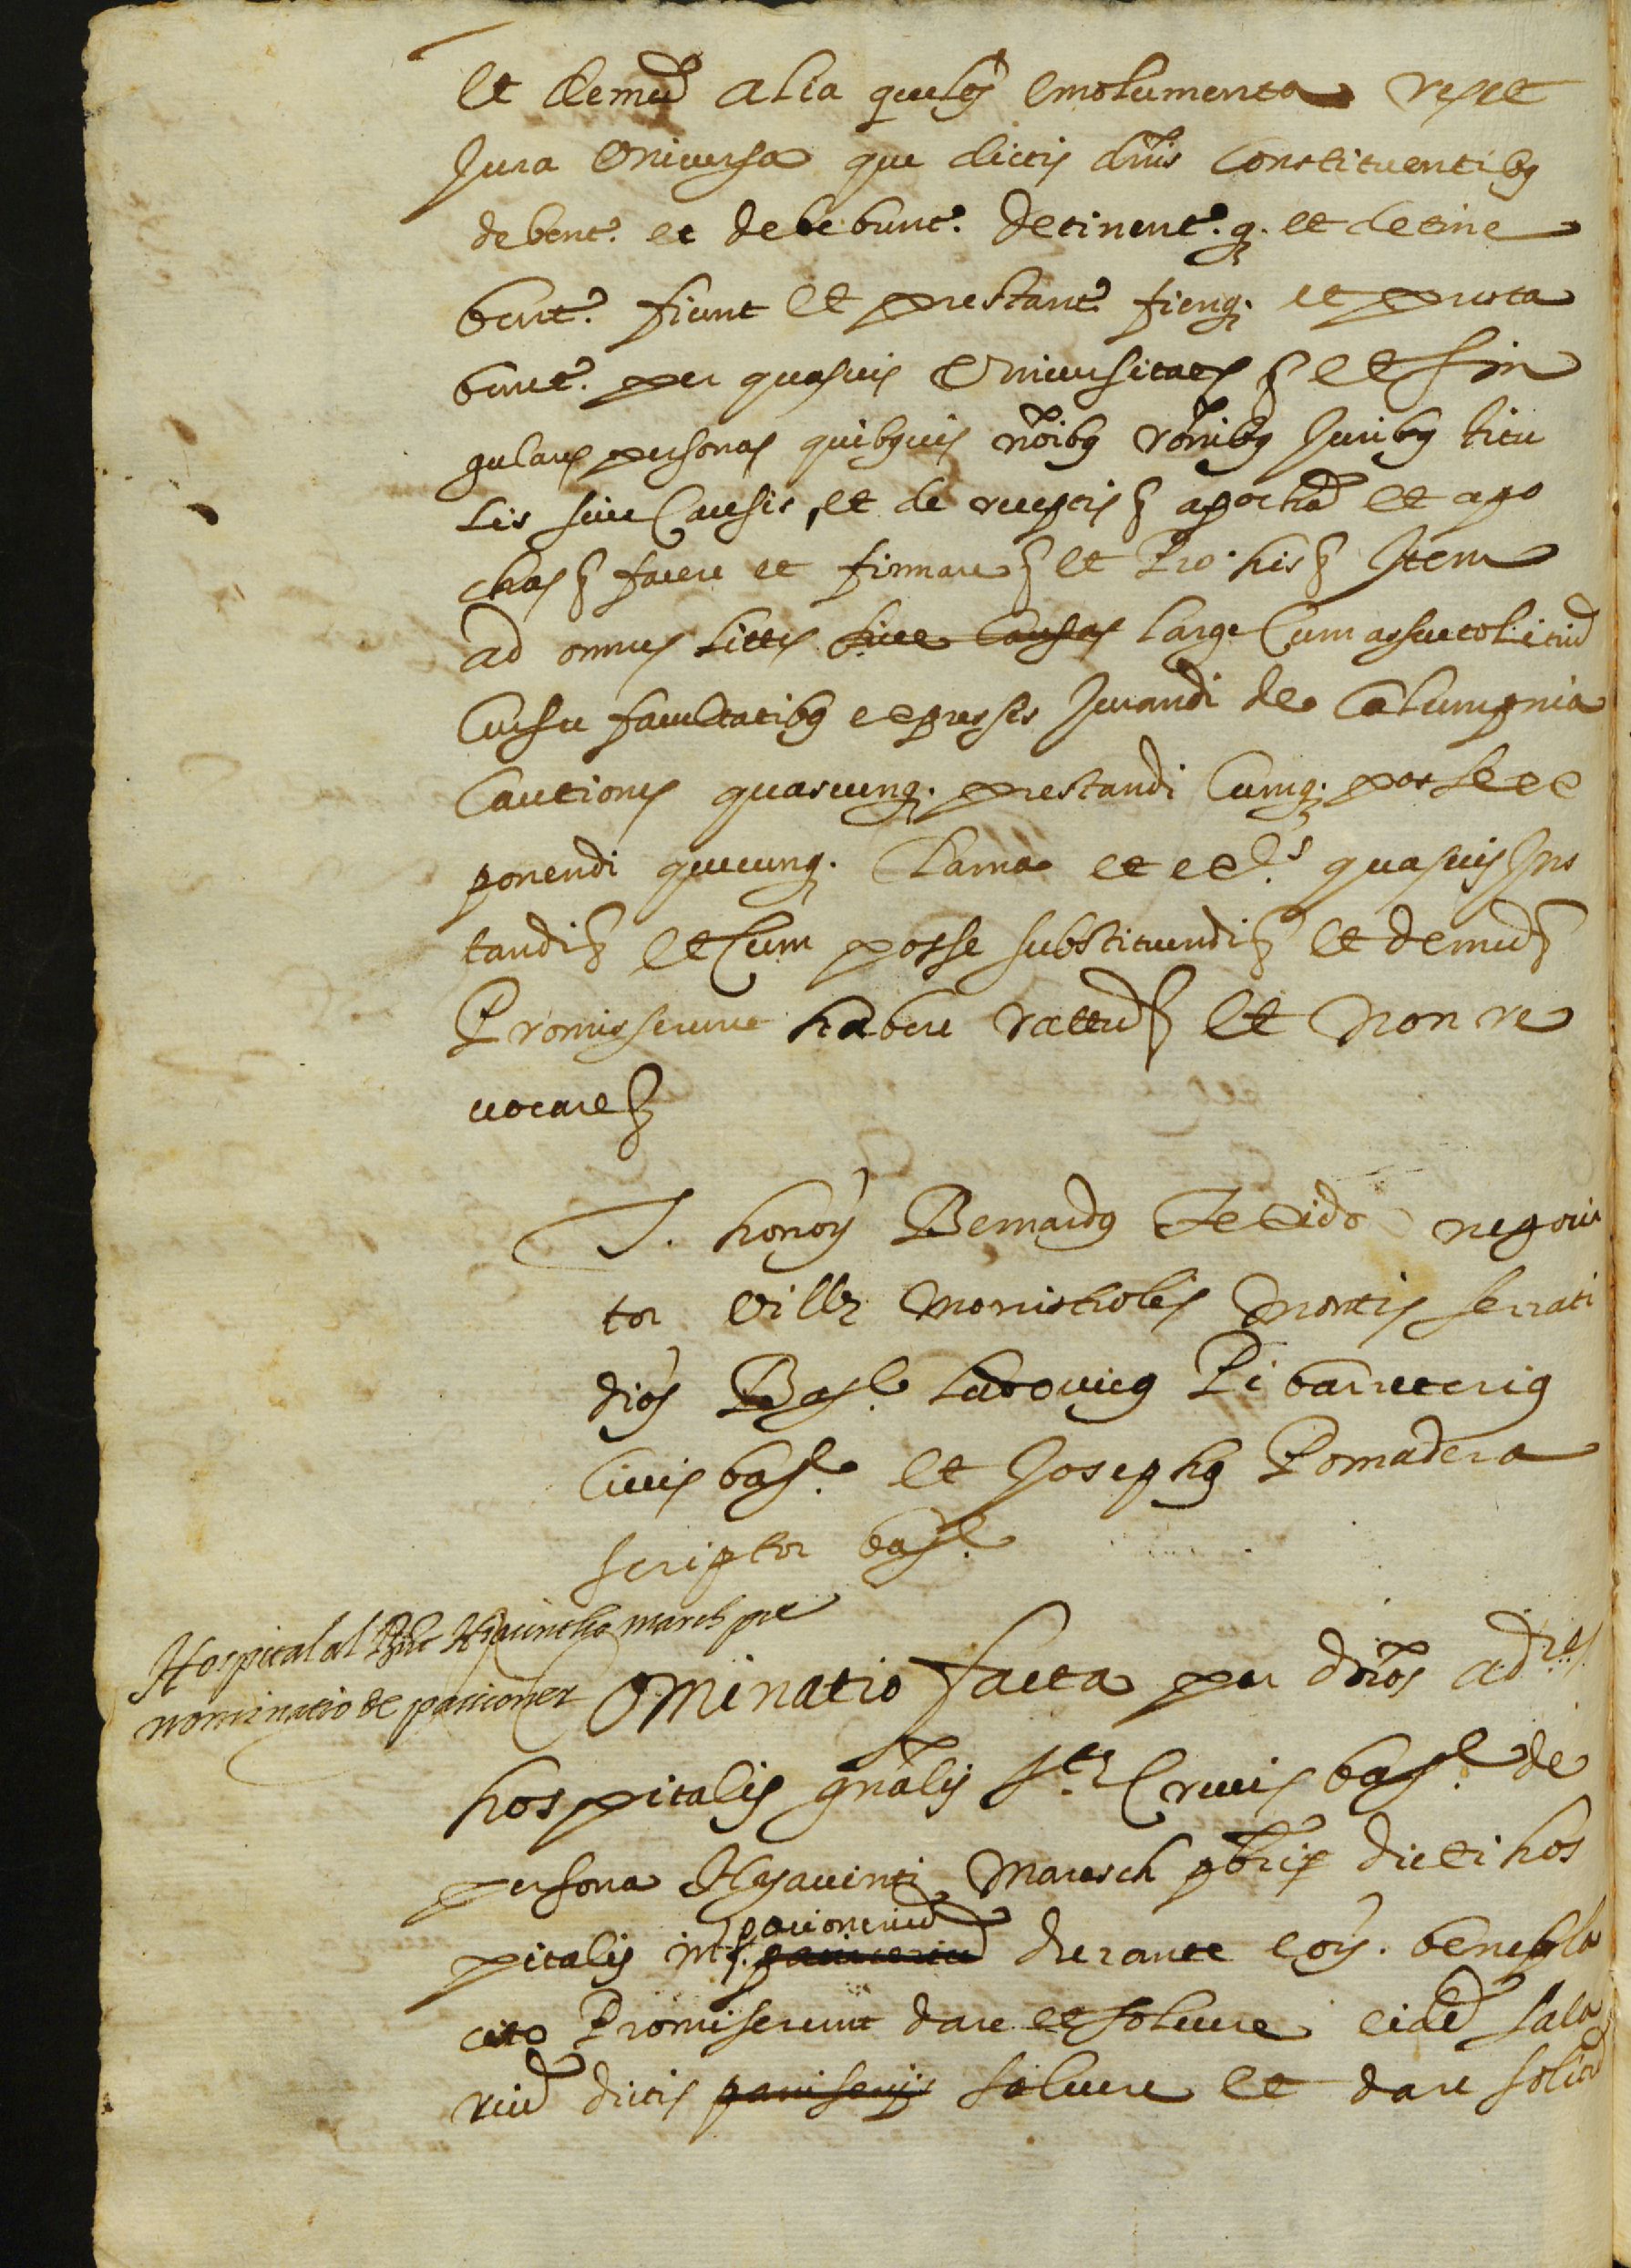 Et demũ alia quecũq emolumenta resque
Jura Universa que dictis dñis Constituentibꝫ
debent.r et debebunt.r detinent.r q. et detine
bunt.r fiunt et prestant.r fientq. et presta
bunt.r per quasvis Universitates § et sin
gulares personas quibꝫvis nõibꝫ rõnibꝫ Juribꝫ titu
lis sive Causis, et de receptis § apocham et apo
chas § facere et firmare § et Pro his § Item
ad omnes littes sive Causas large Cum assueto litiũ
Cursu facultatibꝫ expressis Jurandi de Calumpnia
Cautiones quascunq. prestandi Cumq. posse ex
ponendi quecunq. Clama et ex.s quasvis Ins
tandi § et Cum posse substituendi § et demũ §
Promisserunt habere rattũ § et non re
vocare §
T. honor. Bernardꝰ Texido negocia
tor villæ Monistrolis Montis serrati
diós Bar.e Ludovicꝰ Pi barreterius
Civis bar.e et Josephꝰ Pomadera
scriptor bar.e
Hospital al Rnt Hyacintho March pre
nominatio de pacioner
Nominatio facta per dños ad.res
hospitalis gñalis S.te Crucis bar.e de
persona Hyacinti Marsch pbri dicti hos
pitalis in pacionerium
paniceriũ durante eor. benepla
cito Promiserunt dare et solvere eidẽ sala
riũ dictis panisseris solvere et dare solitũ